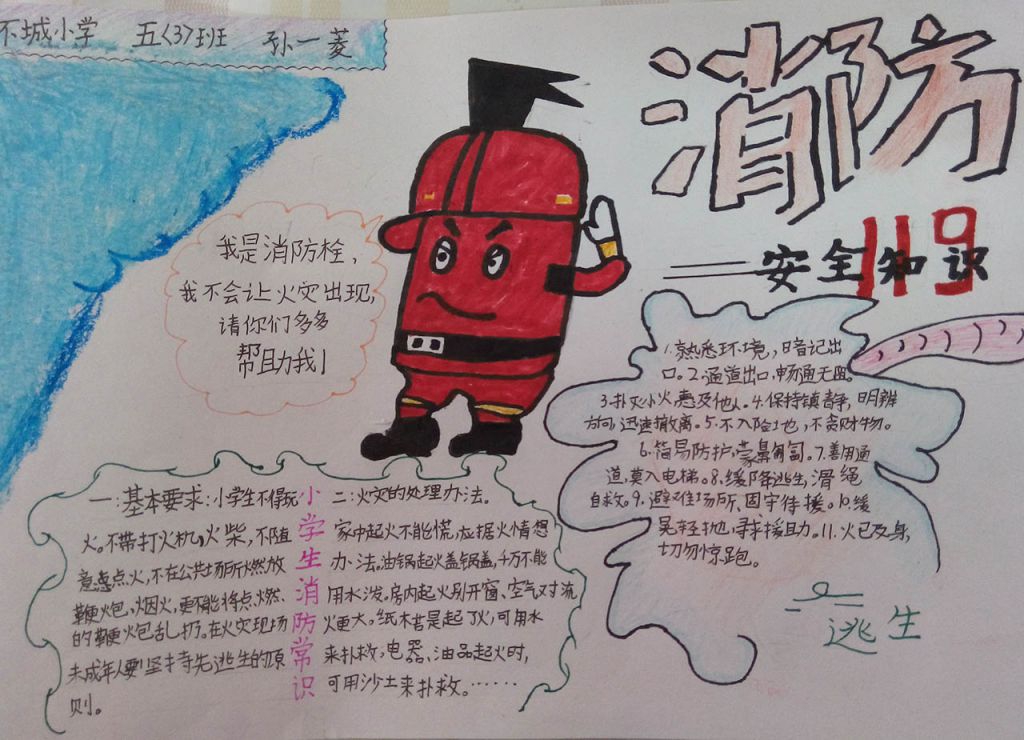 不城小学 五〈3〉班 孙一菱
消防
119
安全知识
我是消防栓，
我不会让火灾出现，
请你们多多
帮助我！
1.熟悉环境，暗记出
口。2.通道出口，畅通无阻。
3.扑灭小火，惠及他人。4.保持镇静，明辨
方向，迅速撤离。5.不入险地，不贪财物。
6.简易防护，蒙鼻匍匐。7.善用通
道，莫入电梯。8.缓降逃生，滑绳
自救。9.避难场所，固守待援。10.缓
晃轻抛，寻求援助。11.火已及身，
切勿惊跑。
逃生
小学生消防常识
一：基本要求：小学生不得玩
火。不带打火机，火柴，不随
意点火，不在公共场所燃放
鞭炮，烟火，更不能将点燃
的鞭炮乱扔。在火灾现场
未成年人要坚持先逃生的原
则。
二：火灾的处理办法。
家中起火不能慌，应据火情想
办法。油锅起火盖锅盖，千万不能
用水泼。房内起火别开窗、空气对流
火更大。纸木若是起了火，可用水
来扑救，电器、油品起火时，
可用沙土来扑救。……